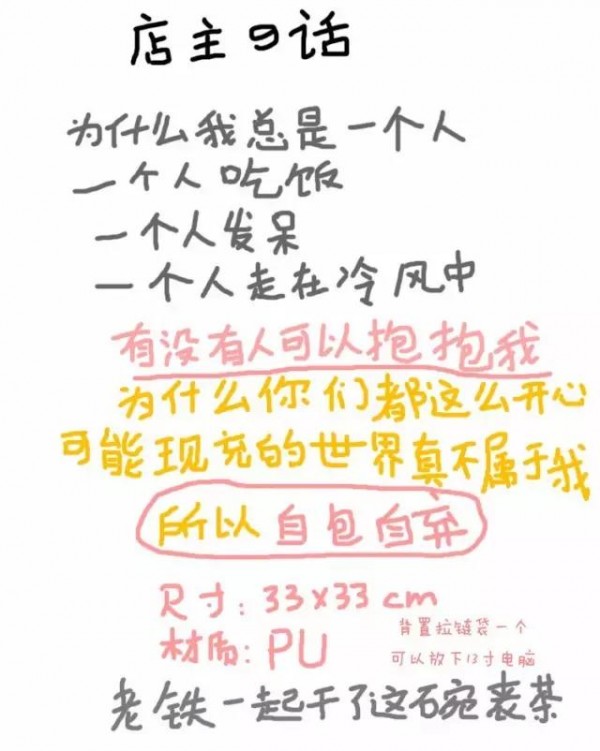 店主の话
为什么我总是一个人
一个人吃饭
一个人发呆
一个人走在冷风中
有没有人可以抱抱我
为什么你们都这么开心
可能现充的世界真不属于我
所以自包自弃
尺寸:33×33cm
材质:PU
背置拉链袋一个
可以放下13寸电脑
老铁一起干了这碗丧茶